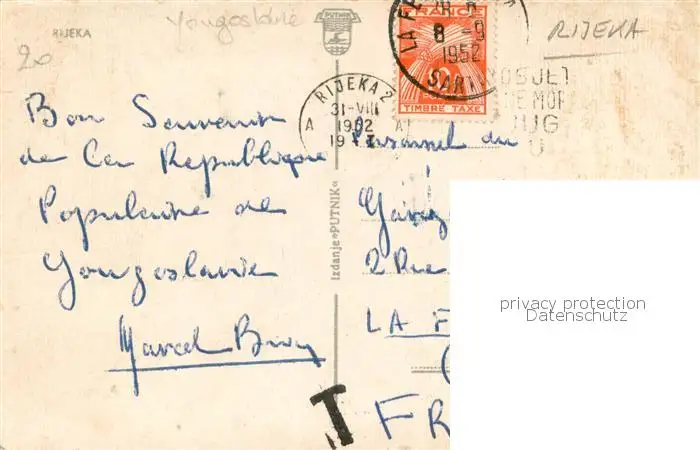 RIJEKA
Yougoslavie
RIJEKA
20
PUTNIK
FRANCE
8 -9
1952
SAR
TIMBRE TAXE
RIJEKA 2
31-VIII
1952
A A
19
POSJET
MOR
JUG
Bon Souvenir
de la République
Populaire de
Yougoslavie
Marcel
Izdanje »PUTNIK«
Personnel du
2 Rue
LA F
FR
T
privacy protection
Datenschutz